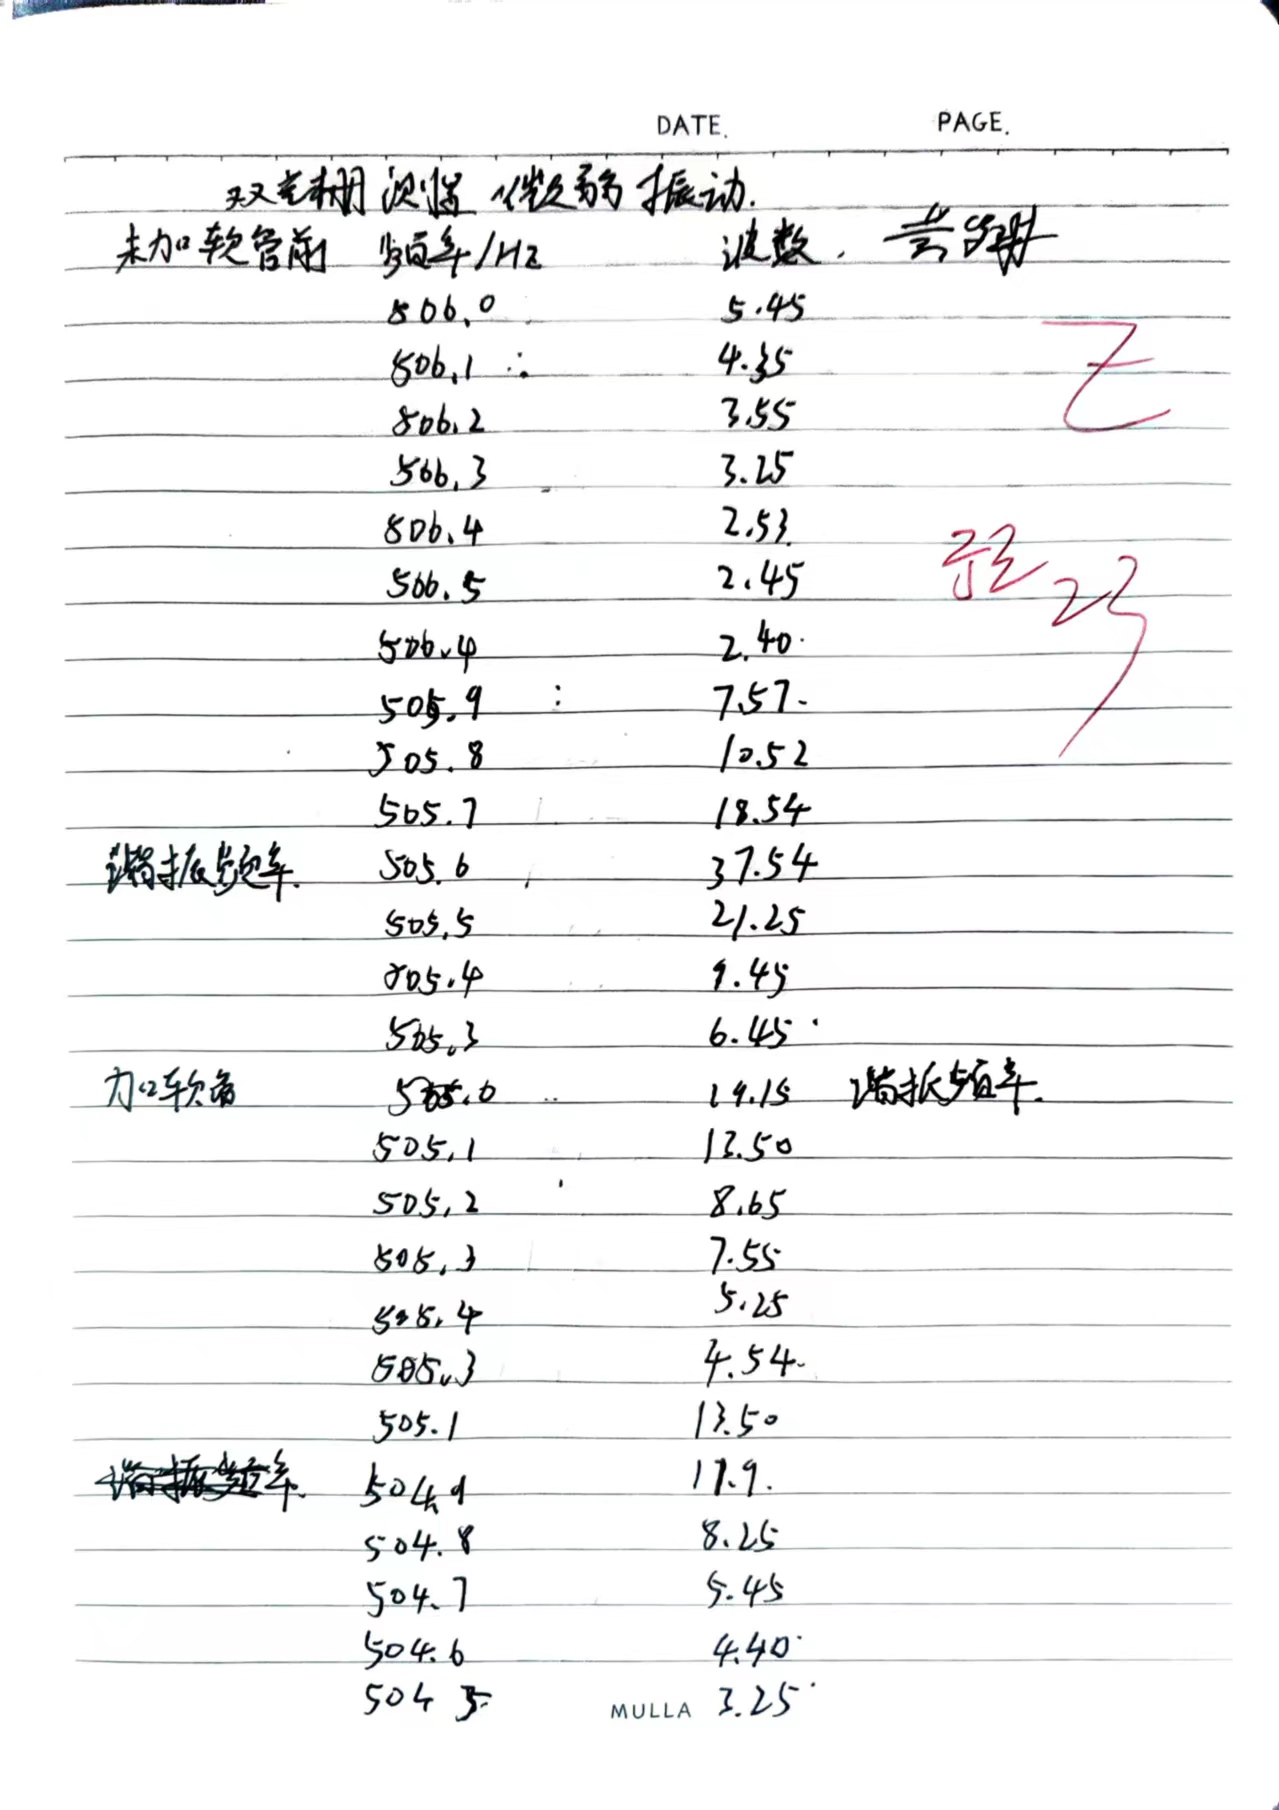 DATE. PAGE.
双光栅测量微弱振动.
未加软管前 频率/Hz 波数.
506.0 5.45
506.1 4.35
506.2 3.55
506.3 3.25
506.4 2.53
506.5 2.45
506.4 2.40
505.9 7.57
505.8 10.52
505.7 18.54
谐振频率. 505.6 37.54
505.5 21.25
505.4 9.45
505.3 6.45
加软管 505.0 19.15 谐振频率.
505.1 13.50
505.2 8.65
505.3 7.55
505.4 5.25
505.3 4.54
505.1 13.50
504.9 17.9.
504.8 8.25
504.7 5.45
504.6 4.40
504 5 3.25
MULLA